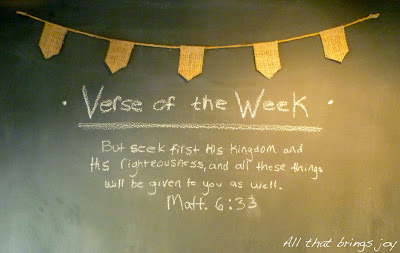 Verse of the Week
But seek first His Kingdom and
His righteousness, and all these things
will be given to you as well.
Matt. 6:33
All that brings joy